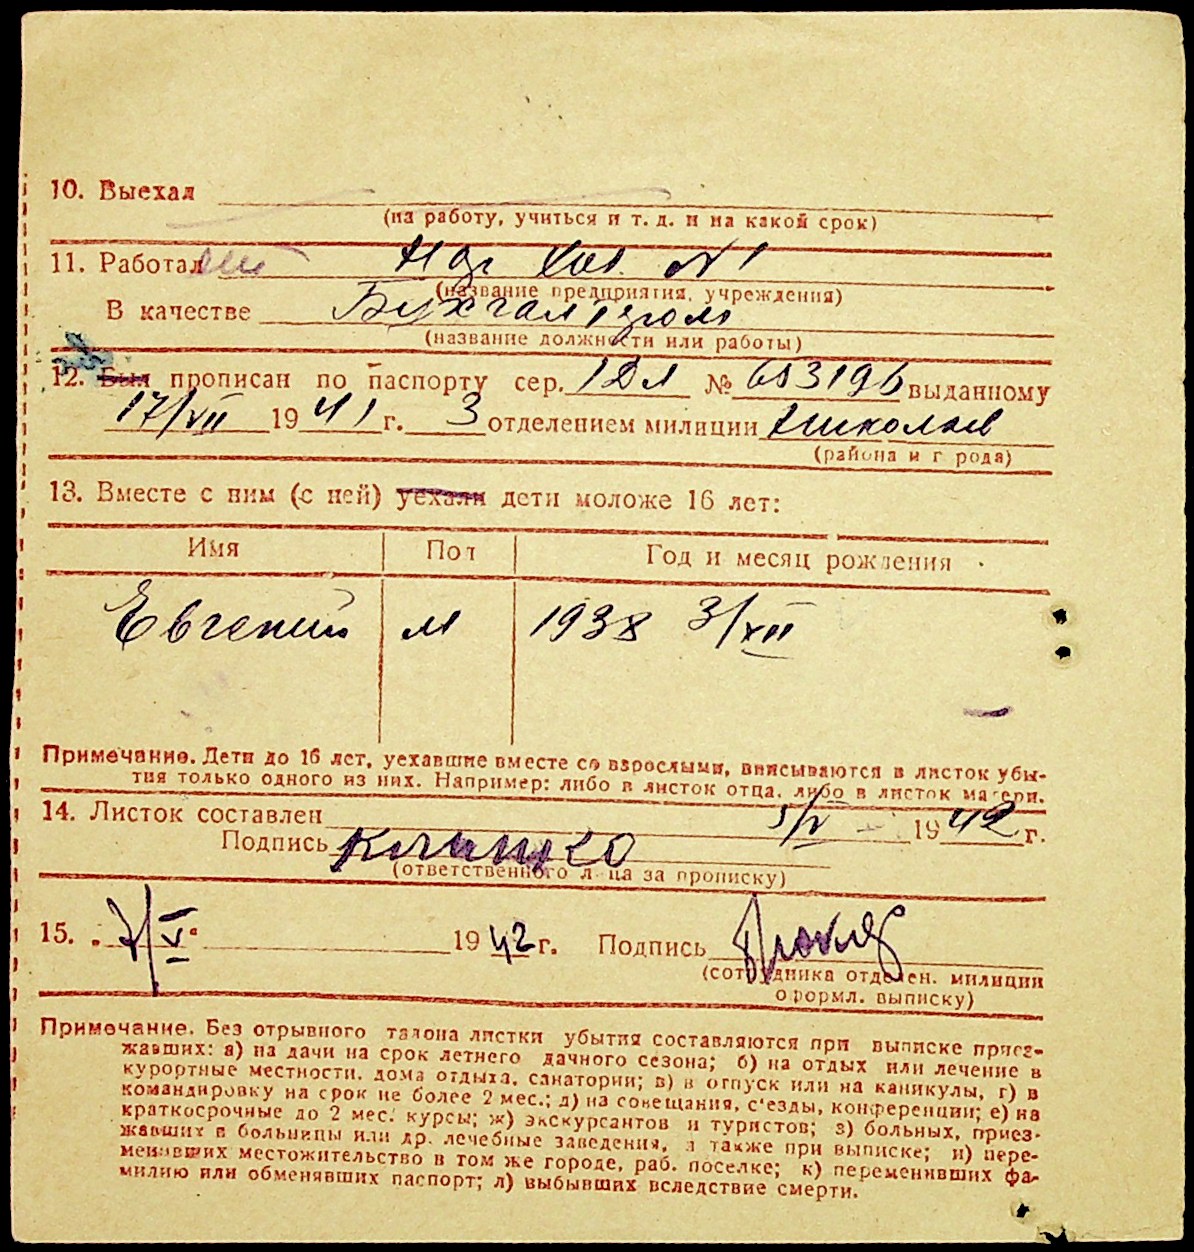 10. Выехал
(на работу, учиться и т. д. и на какой срок)
11. Работал № 1
(название предприятия, учреждения)
В качестве Бухгалтером
(название должности или работы)
12. Был прописан по паспорту сер. 1 ДЛ № 653196 выданному
17/VII 1941 г. 3 отделением милиции Николаев
(района и г рода)
13. Вместе с ним (с ней) уехали дети моложе 16 лет:
Имя Пол Год и месяц рождения
Евгений м 1938 3/XII
Примечание. Дети до 16 лет, уехавшие вместе со взрослыми, вписываются в листок убы-
тия только одного из них. Например: либо в листок отца, либо в листок матери.
14. Листок составлен 5/V 1942 г.
Подпись
(ответственного лица за прописку)
15. „7/V“ 1942 г. Подпись
(сотрудника отделен. милиции
оформл. выписку)
Примечание. Без отрывного талона листки убытия составляются при выписке приез-
жавших: а) на дачи на срок летнего дачного сезона; б) на отдых или лечение в
курортные местности, дома отдыха, санатории; в) в отпуск или на каникулы, г) в
командировку на срок не более 2 мес.; д) на совещания, с'езды, конференции; е) на
краткосрочные до 2 мес. курсы; ж) экскурсантов и туристов; з) больных, приез-
жавших в больницы или др. лечебные заведения, а также при выписке; и) пере-
менивших местожительство в том же городе, раб. поселке; к) переменивших фа-
милию или обменявших паспорт; л) выбывших вследствие смерти.